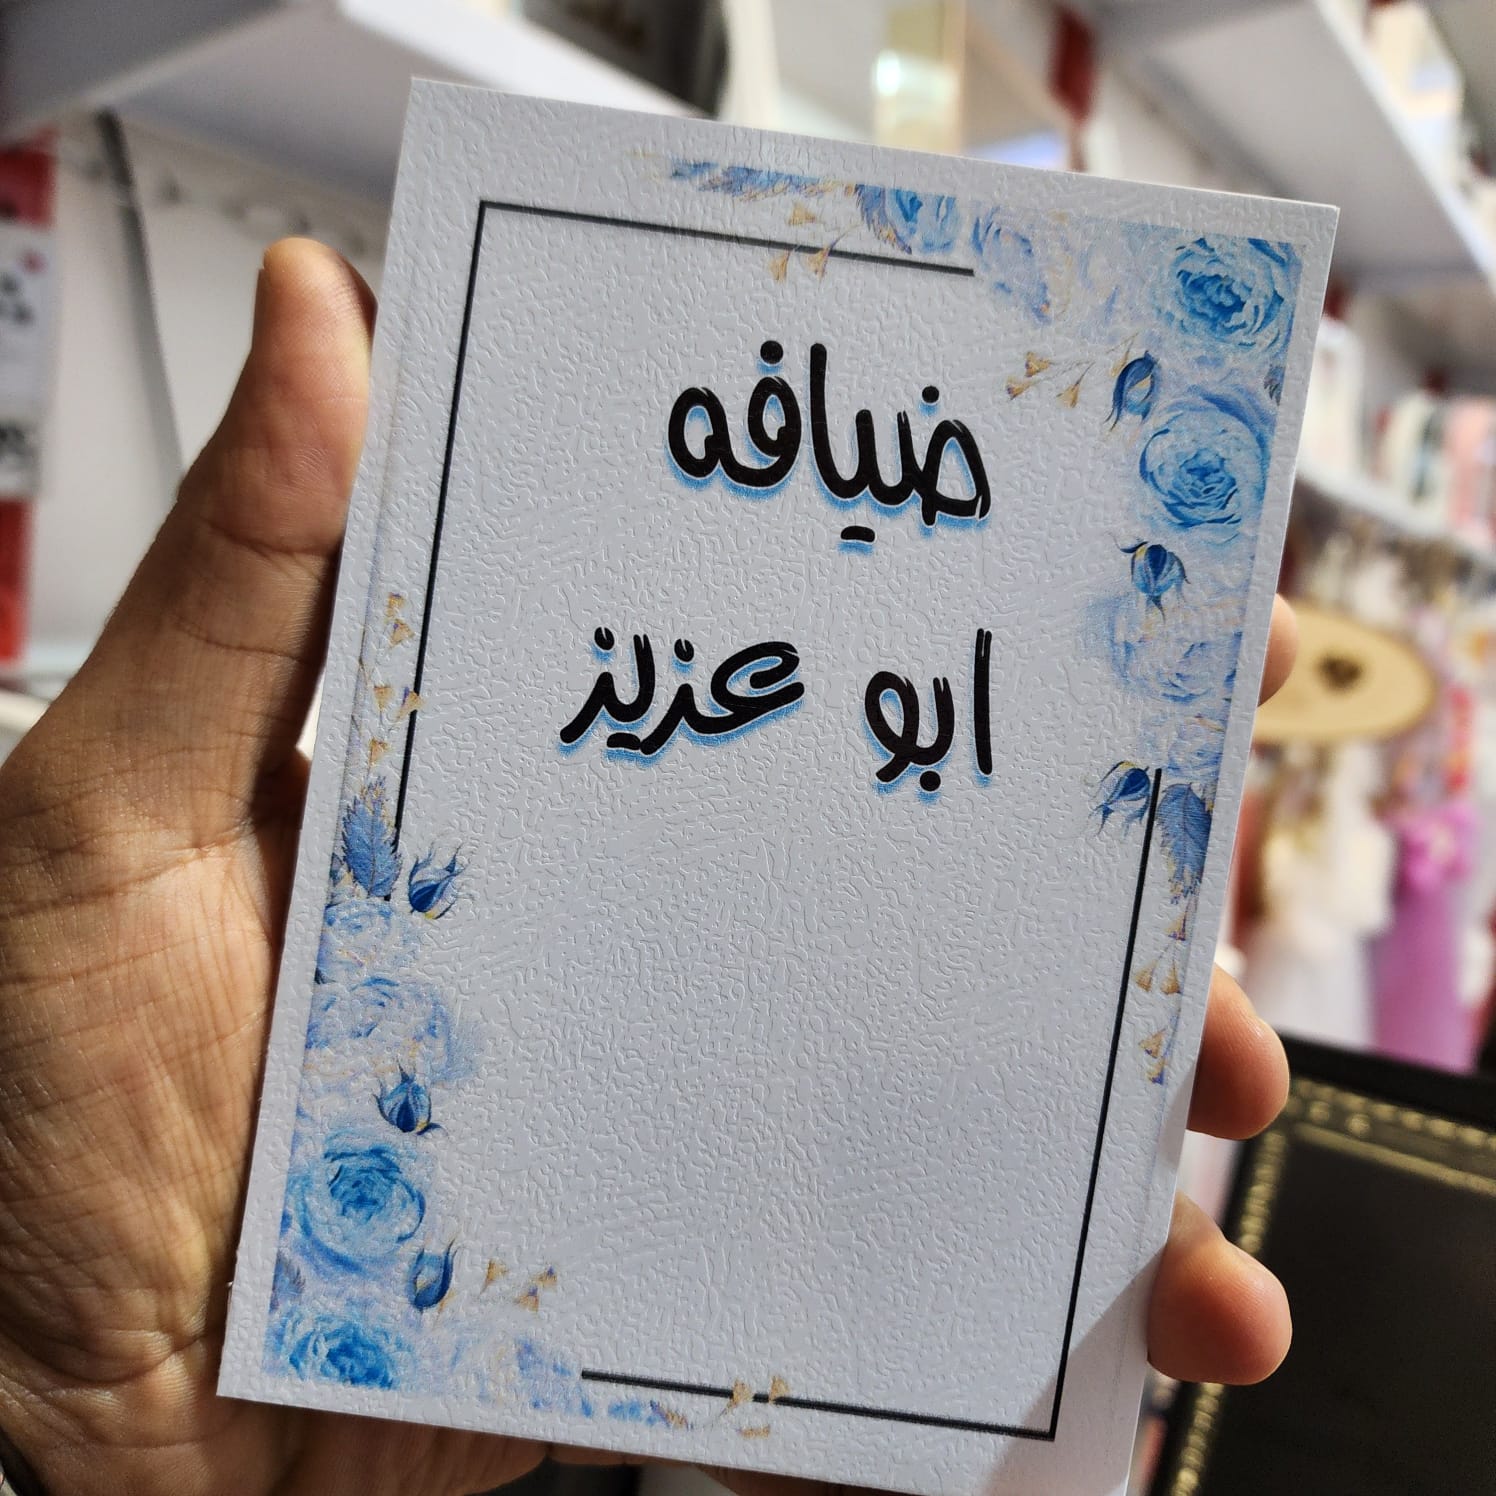 ضيافه
ابو عزيز